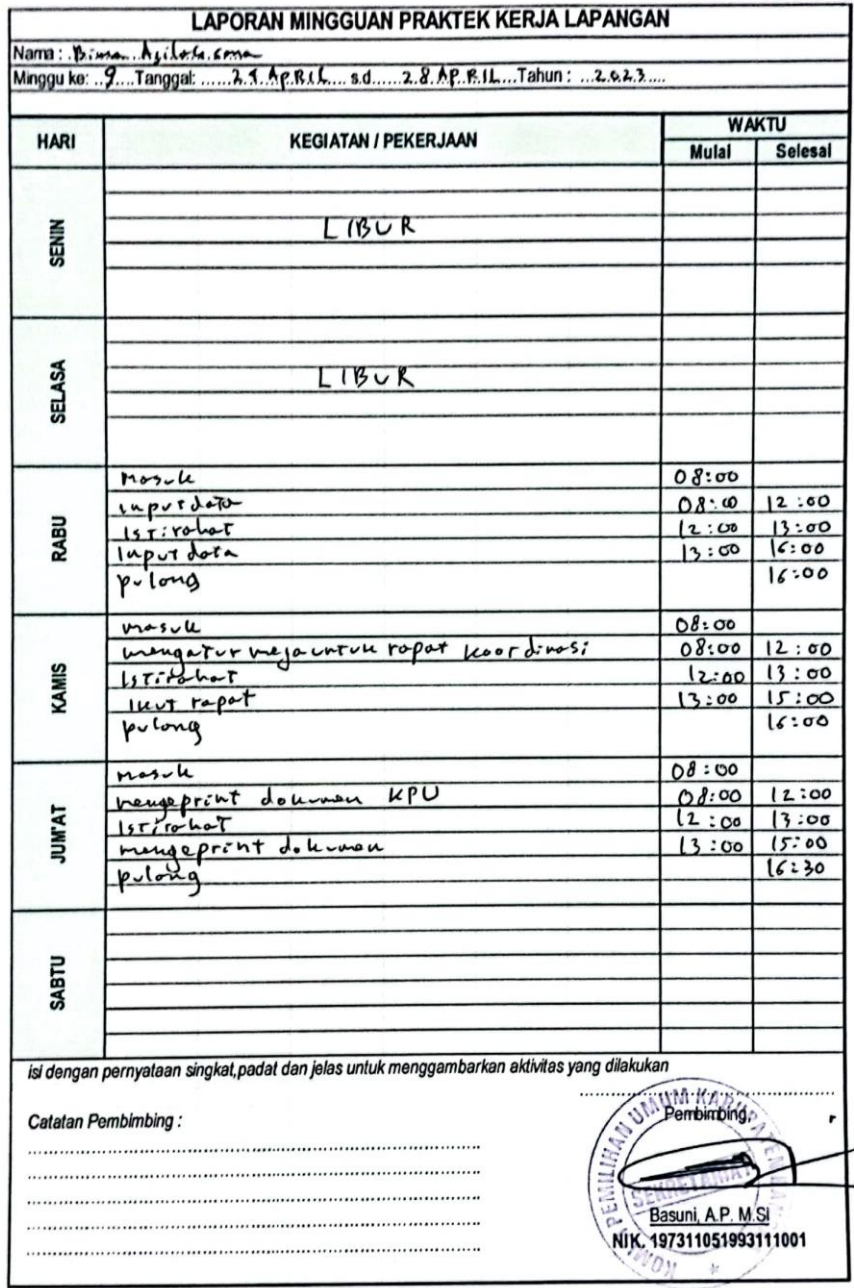 LAPORAN MINGGUAN PRAKTEK KERJA LAPANGAN
Nama : Bima
Minggu ke: 9 Tanggal: APRIL s.d 28 APRIL Tahun : 2023
HARI KEGIATAN / PEKERJAAN WAKTU
Mulai Selesai
SENIN
LIBUR
SELASA
LIBUR
RABU
Masuk 08:00
input data 08:00 12:00
Istirahat 12:00 13:00
Input data 13:00 16:00
pulang 16:00
KAMIS
masuk 08:00
mengatur meja untuk rapat koordinasi 08:00 12:00
Istirahat 12:00 13:00
Ikut rapat 13:00 15:00
pulang 16:00
JUM'AT
masuk 08:00
mengeprint dokumen KPU 08:00 12:00
Istirahat 12:00 13:00
mengeprint dokumen 13:00 15:00
pulang 16:30
SABTU
isi dengan pernyataan singkat,padat dan jelas untuk menggambarkan aktivitas yang dilakukan
Catatan Pembimbing :
Pembimbing,
KOMISI PEMILIHAN UMUM KABUPATEN
SEKRETARIAT
Basuni, A.P. M.Si
NIK. 197311051993111001